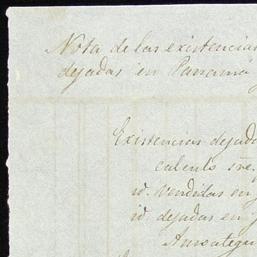 Nota de las existencias
dejadas en Panamá
Existencias dejad
calculo sre.
id. vendidas en
id. dejadas en
Ansategu